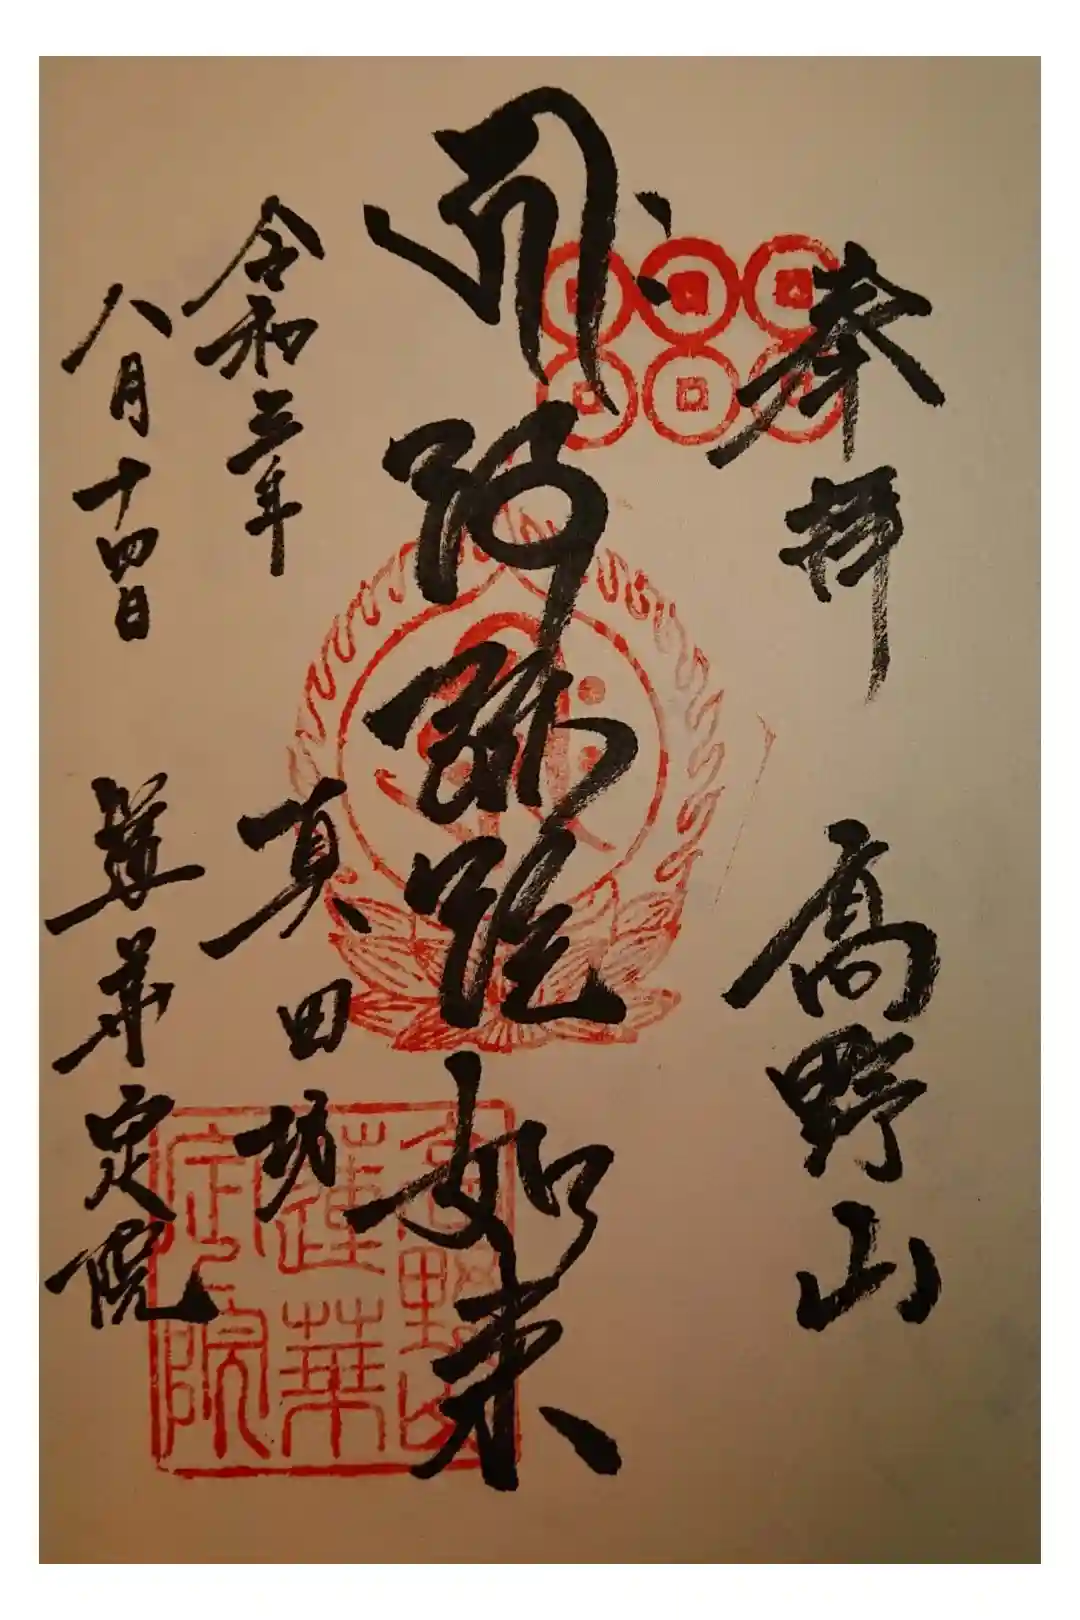 奉拝 高野山
阿弥陀如来
令和三年 真田坊
八月十四日 蓮華定院
高野山
蓮華
定院